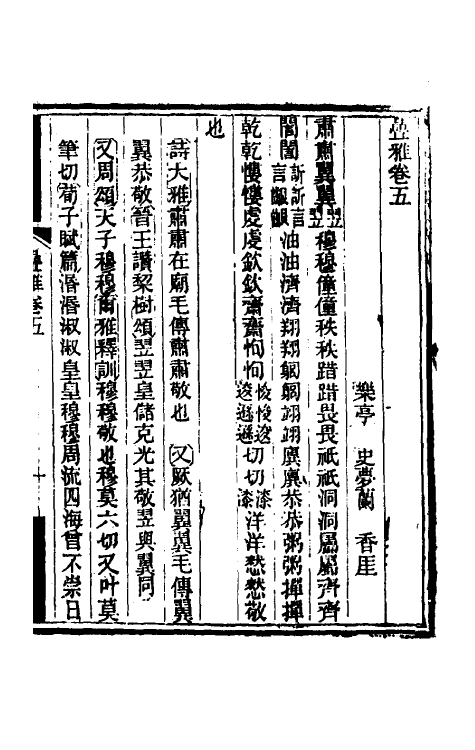 疊雅卷五
樂亭 史夢蘭 香厓
肅肅翼翼翌翌穆穆僮僮秩秩踖踖畏畏祗祗洞洞屬屬齊齊
誾誾訢訢言言齦齦油油濟濟翔翔躬躬翊翊廙廙恭恭粥粥揮揮
乾乾慺慺虔虔欽欽齋齋恂恂悛悛逡逡遜遜切切漆漆洋洋愁愁敬
也
詩大雅肅肅在廟毛傳肅肅敬也 又厥猶翼翼毛傳翼
翼恭敬晉王讚梨樹頌翌翌皇儲克光其敬翌與翼同
又周頌天子穆穆爾雅釋訓穆穆敬也穆莫六切又叶莫
筆切荀子賦篇湣湣淑淑皇皇穆穆周流四海曾不崇日
疊雅卷五